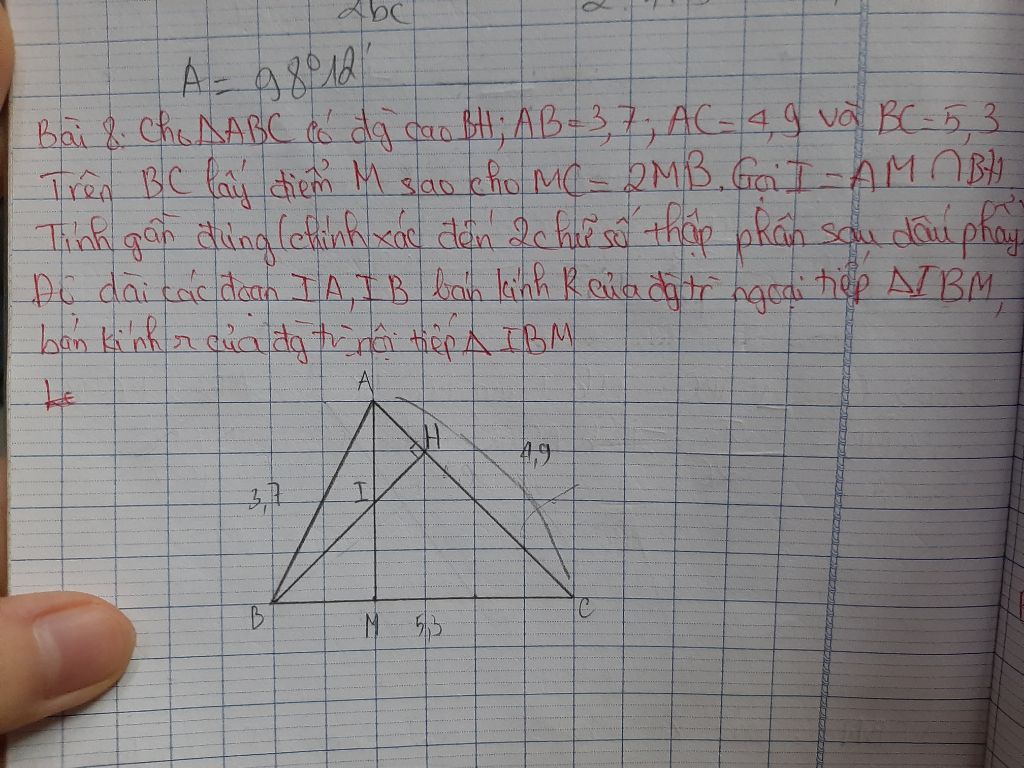 2bc
A = 98°12'
Bài 8: Cho ΔABC có đg cao BH; AB=3,7; AC=4,9 và BC=5,3
Trên BC lấy điểm M sao cho MC=2MB. Gọi I=AM∩BH.
Tính gần đúng (chính xác đến 2 chữ số thập phân sau dấu phẩy)
Độ dài các đoạn IA, IB bán kính R của đg tr ngoại tiếp ΔIBM,
bán kính r của đg tr nội tiếp Δ IBM
A
H
4,9
3,7
I
B
M
5,3
C